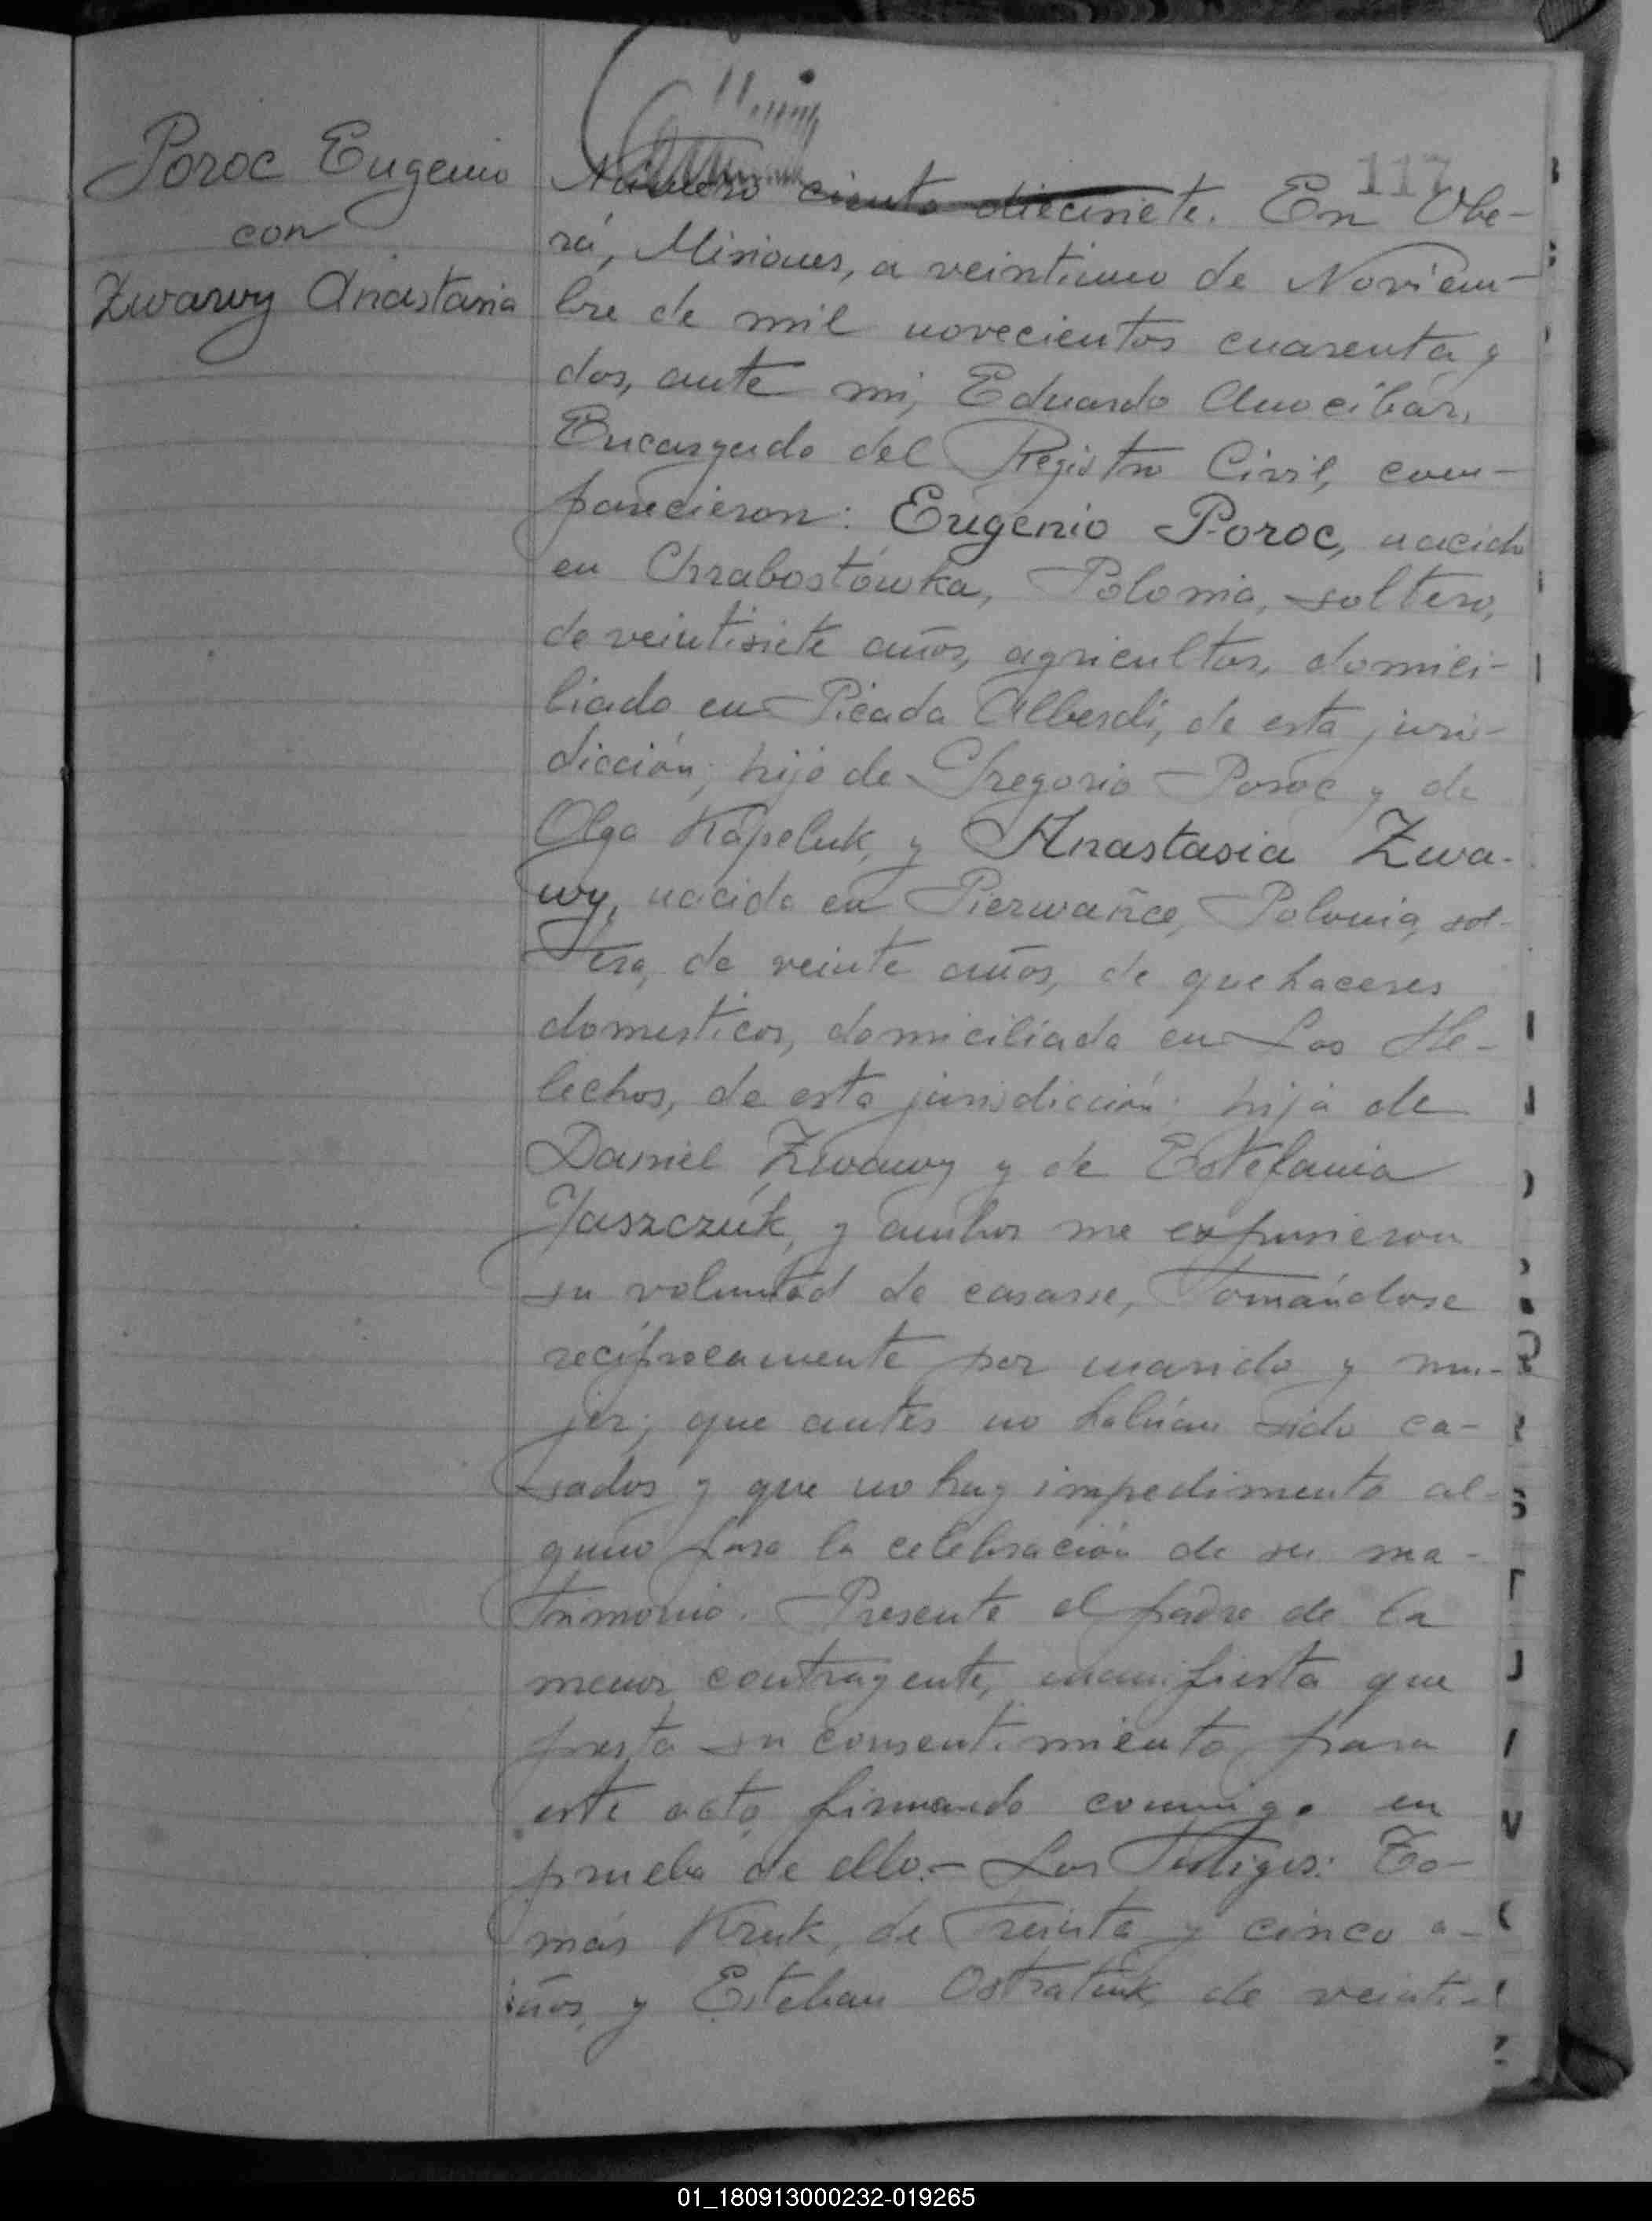 Poroc Eugenio
con
Zwawy Anastasia
117
Número ciento diecisiete. En Obe-
rá, Misiones, a veintiuno de Noviem-
bre de mil novecientos cuarenta y
dos, ante mi, Eduardo Anocibar,
Encargado del Registro Civil, com-
parecieron: Eugenio Poroc, nacido
en Chrabostówka, Polonia, soltero,
de veintisiete años, agricultor, domici-
liado en Picada Alberdi, de esta juris-
dicción; hijo de Gregorio Poroc y de
Olga Kapeluk, y Anastasia Zwa-
wy, nacida en Pierwańce, Polonia, sol-
tera, de veinte años, de quehaceres
domesticos, domiciliada en Los He-
lechos, de esta jurisdicción; hija de
Daniel Zwawy y de Estefania
Jaszczúk, y ambos me expusieron
su voluntad de casarse, tomándose
recíprocamente por marido y mu-
jer; que antes no habían sido ca-
sados y que no hay impedimento al-
guno para la celebración de su ma-
trimonio. Presente el padre de la
menor contrayente, manifiesta que
presta su consentimiento para
este acto firmando conmigo en
prueba de ello.- Los Testigos: To-
más Kruk, de treinta y cinco a-
ños, y Esteban Ostratiuk, de veinti-
01_180913000232-019265